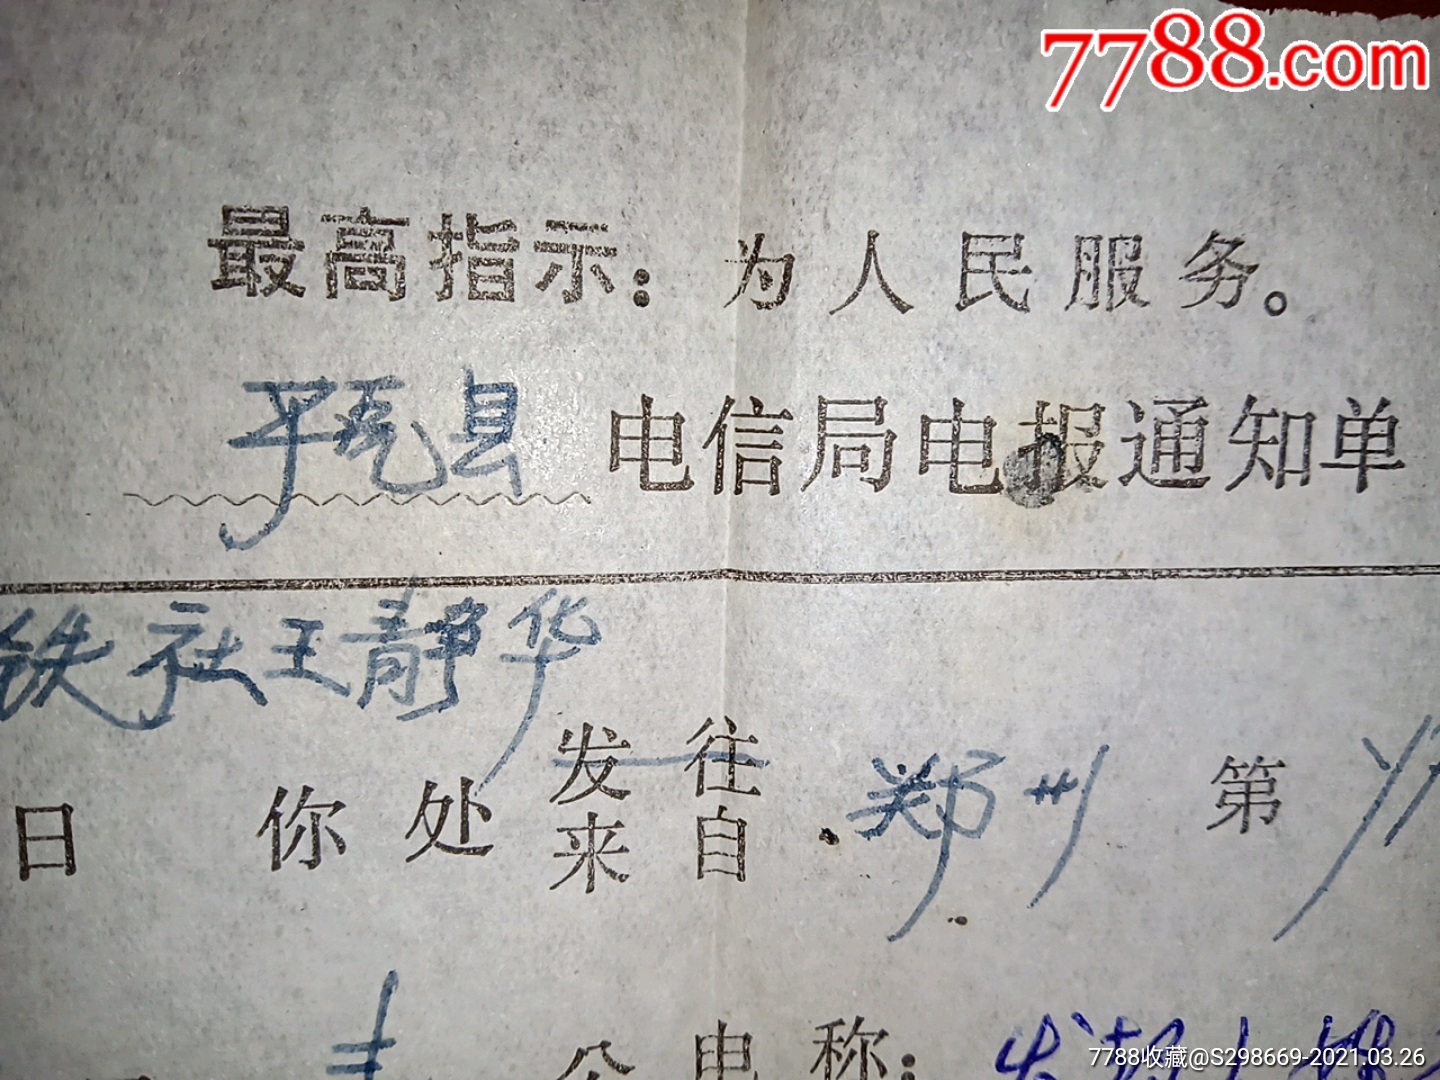 7788.com
最高指示：为人民服务。
平顶县 电信局电报通知单
铁社王静华
发往
日 你处 郑州 第
来自
公电称：
7788收藏@S298669-2021.03.26